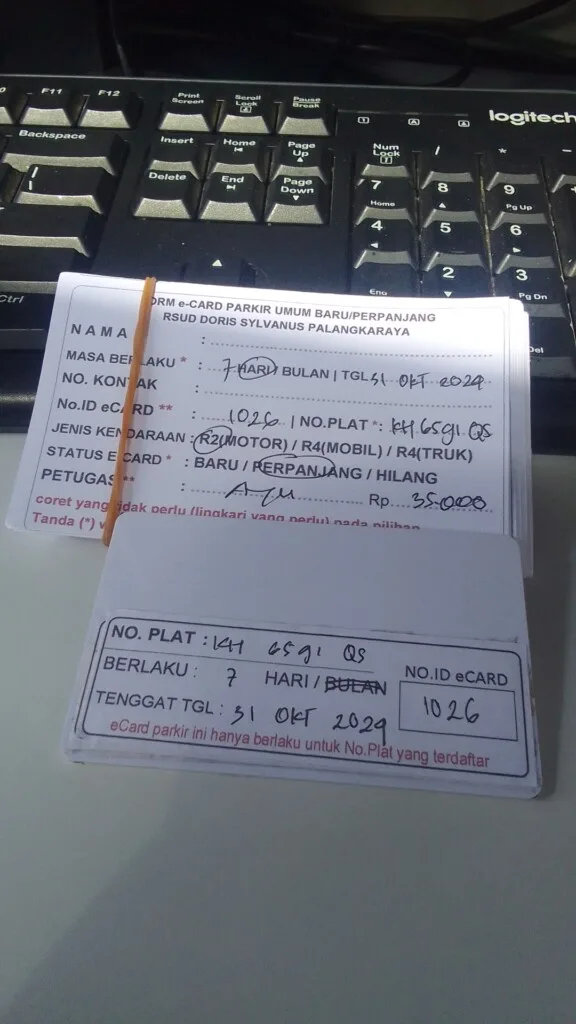 F11 F12 Print Screen Scroll Lock Pause Break
logitech
Backspace Insert Home Page Up Num Lock / * -
\ Delete End Page Down 7 Home 8 9 Pg Up
4 5 6
Ctrl End 2 3 Pg Dn
Del
ORM e-CARD PARKIR UMUM BARU/PERPANJANG
RSUD DORIS SYLVANUS PALANGKARAYA
NAMA :
MASA BERLAKU * : 7 HARI / BULAN | TGL 31 OKT 2029
NO. KONTAK :
No.ID eCARD ** : 1026 | NO.PLAT *: KH 6591 QS
JENIS KENDARAAN : R2(MOTOR) / R4(MOBIL) / R4(TRUK)
STATUS ECARD * : BARU / PERPANJANG / HILANG
PETUGAS ** : Ayu Rp 35000
coret yang tidak perlu (lingkari yang perlu) pada pilihan
Tanda (*) w
NO. PLAT : KH 6591 QS
BERLAKU : 7 HARI / BULAN
NO.ID eCARD
1026
TENGGAT TGL : 31 OKT 2029
eCard parkir ini hanya berlaku untuk No.Plat yang terdaftar